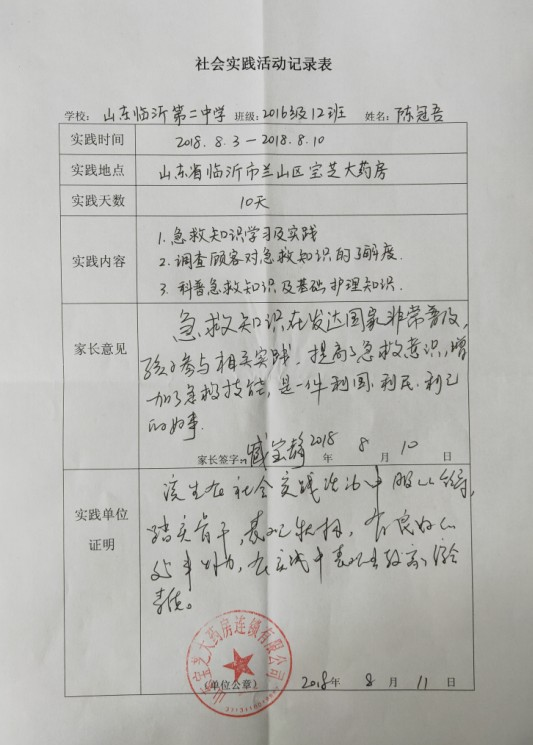 社会实践活动记录表
学校：山东临沂第二中学 班级：2016级12班 姓名：陈冠吾
实践时间 2018.8.3—2018.8.10
实践地点 山东省临沂市兰山区宝芝大药房
实践天数 10天
实践内容
1.急救知识学习及实践
2.调查顾客对急救知识的了解度.
3.科普急救知识及基础护理知识.
家长意见
急救知识在发达国家非常普及,
孩子参与相关实践,提高了急救意识,增
加了急救技能,是一件利国.利民.利己
的好事.
家长签字: 臧宝静 2018年 8月 10日
实践单位
证明
该生在社会实践活动中服从领导,
踏实肯干,表现积极,有良好的
处事能力,在实践中表现出较高的
责任。
宝芝大药房连锁有限公司
(单位公章) 2018年 8月 11日